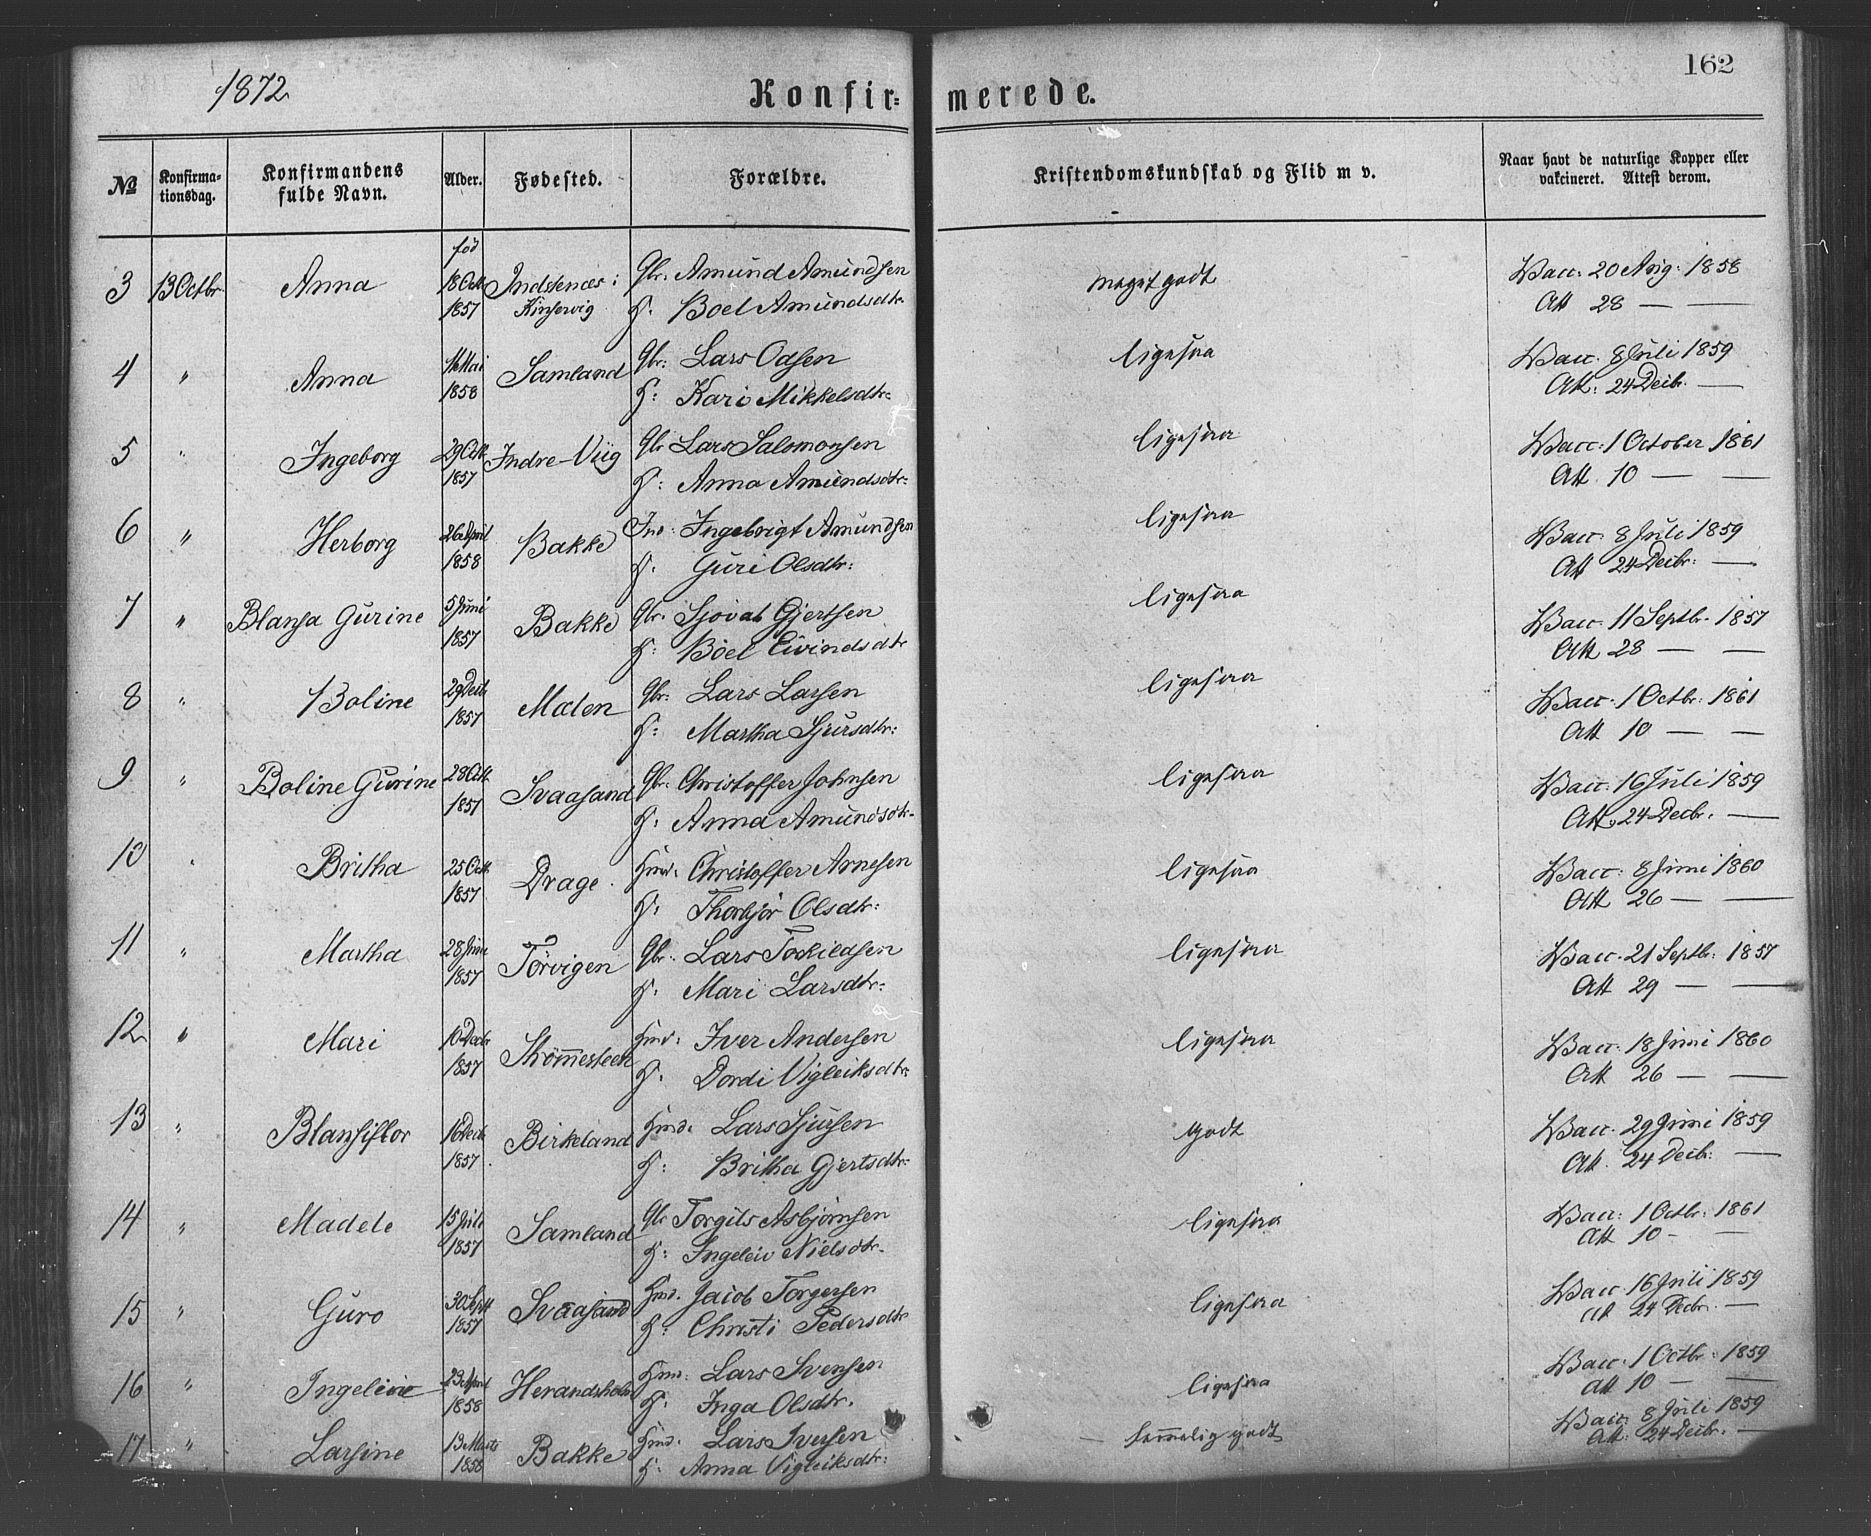 1872
Konfir= merede.
162
No Konfirma-tionsdag. Konfirmandens fulde Navn. Alder. Fødested. Forældre. Kristendomskundskab og Flid m v. Naar havt de naturlige Kopper eller vakcineret. Attest derom.
fød
3 13 Octbr. Anna 18 Octb 1857 Indstenæs i Kinservig Gbr. Amund Amundsen meget godt Vacc: 20 Aug: 1858
H. Boel Amundsdtr Att 28 — —
4 " Anna Mai 1858 Samland Gbr: Lars Odsen ligesaa Vacc. 8 Juli 1859
H: Kari Mikkelsdtr: Att: 24 Decbr. —
5 " Ingeborg 29 Octb 1857 Indre-Viig Gbr Lars Salomonsen ligesaa Vacc: 1 October 1861
H: Anna Amundsdtr Att 10 — —
6 " Herborg 26 April 1858 Bakke Ind: Ingebrigt Amundsen ligesaa Vacc: 8 Juli 1859
H. Guri Olsdtr: Att 24 Decbr: —
7 " Blansa Gurine 5 Juni 1857 Bakke Gbr. Sjovat Gjertsen ligesaa Vacc. 11 Septbr. 1857
H: Boel Eivindsdtr Att 28 — —
8 " Boline 29 Decb 1857 Mælen Gbr: Lars Larsen ligesaa Vacc. 1 Octbr: 1861
H: Martha Sjursdtr: Att 10 — —
9 " Boline Gurine 28 Oct. 1857 Svaasand Gbr. Christoffer Johnsen ligesaa Vacc. 16 Juli 1859
H: Anna Amundsdtr. Att. 24 Decbr. —
10 " Britha 25 Octb 1857 Drage. Hmd: Christoffer Arnesen ligesaa Vacc: 8 Juni 1860
H: Thorbjør Olsdtr: Att 26 — —
11 " Martha 28 Juni 1857 Törvigen Gbr: Lars Torkildsen ligesaa Vacc. 21 Septbr: 1857
H. Mari Larsdtr. Att 29 — —
12 " Mari 10 Decbr 1857 Strømmesteen Hmd: Iver Andersen ligesaa Vacc: 18 Juni 1860
H. Dordi Vigleiksdtr: Att 26 — —
13 " Blansiflor 16 Decb. 1857 Birkeland Hmd. Lars Sjursen godt Vacc. 29 Juni 1859
H: Britha Gjertsdtr. Att. 24 Decbr: —
14 " Madele 15 Juli 1857 Samland Gbr Torgils Asbjørnsen ligesaa Vacc: 1 Octbr: 1861
H: Ingeleiv Nielsdtr. Att 10 - —
15 " Guro 30 Septb 1857 Svaasand Hmd. Jacob Torgersen ligesaa Vacc 16 Juli 1859
H: Christi Pedersdtr Att 24 Decbr. —
16 " Ingeleiv 23 April 1858 Herandsholm Hmd: Lars Svensen ligesaa Vacc. 1 Octbr: 1859
H. Inga Olsdtr. Att 10 — —
17 " Larsine 13 Marts 1858 Bakke Hmd. Lars Iversen — temmelig godt Vacc: 8 Juli 1859
H: Anna Vigleiksdtr: Att: 24 Decbr. —